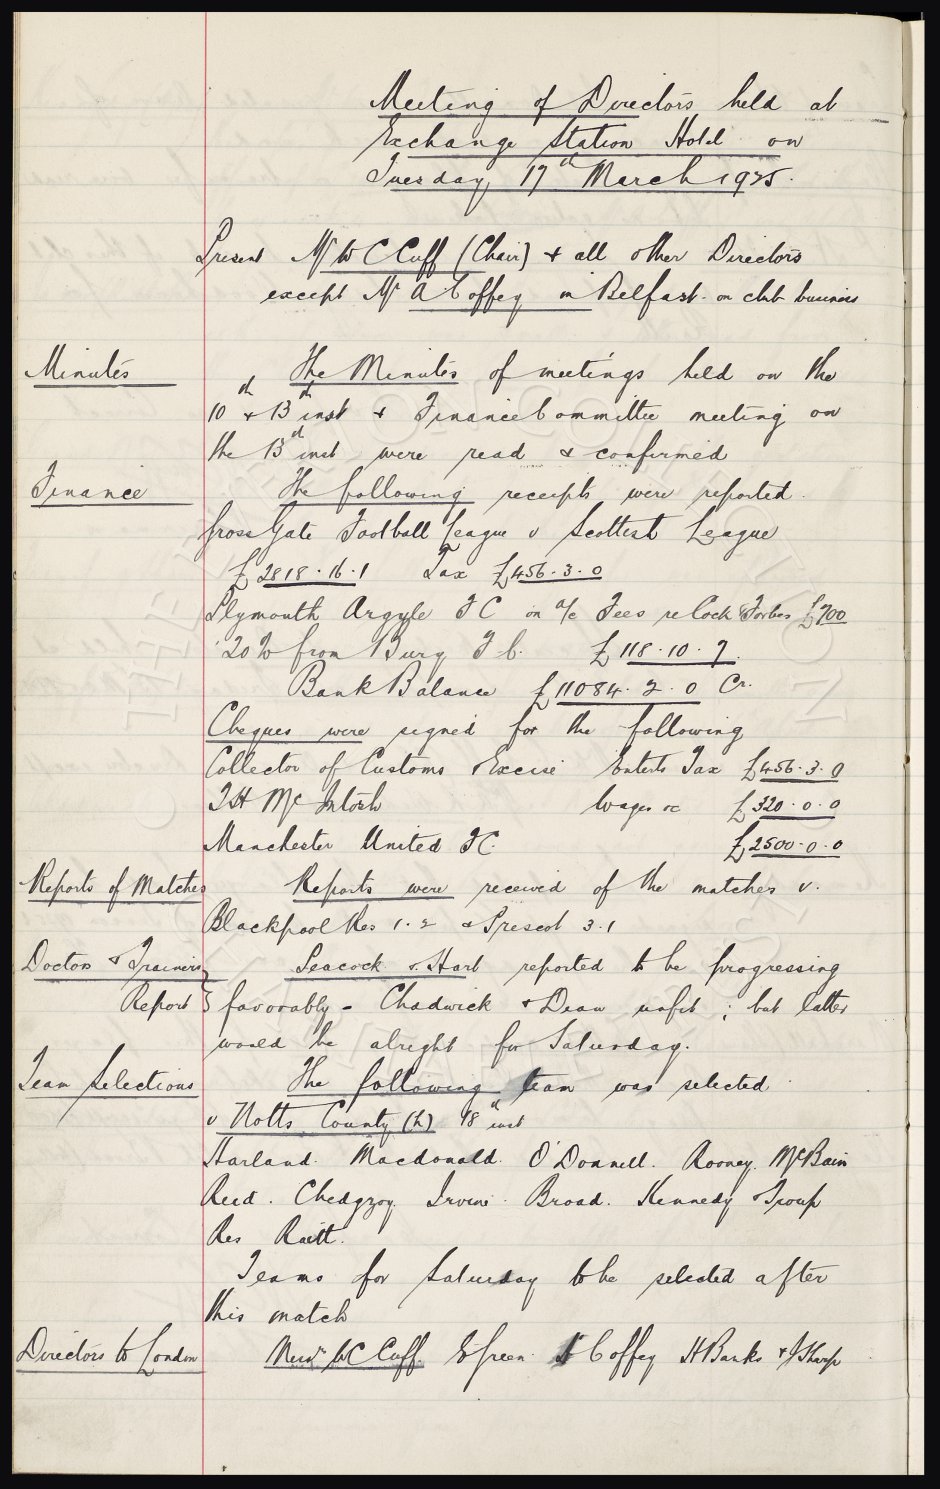 Meeting of Directors held at
Exchange Station Hotel on
Tuesday 17th March 1925.
Present Mr W C Cuff (Chair) & all other Directors
except Mr A Coffey in Belfast on club business
Minutes The Minutes of meetings held on the
10th & 13th inst & Finance Committee meeting on
the 13th inst were read & confirmed
Finance The following receipts were reported.
Gross Gate Football League v Scottish League
£2818.16.1 Tax £456.3.0
Plymouth Argyle F C on a/c Fees re Cock & Forbes £700
20% from Bury F C. £118.10.7.
Bank Balance £11084.2.0 Cr.
Cheques were signed for the following
Collector of Customs & Excise Enterts Tax £456.3.0
T H McIntosh Wages &c £320.0.0
Manchester United F C. £2500.0.0
Reports of Matches Reports were received of the matches v.
Blackpool Res 1.2 & Prescot 3.1
Doctors & Trainers Peacock & Hart reported to be progressing
Report favorably - Chadwick & Dean unfit; but latter
would be alright for Saturday.
Team Selections The following team was selected
v Notts County (h) 18th inst
Harland. Macdonald. O'Donnell. Rooney. McBain
Reid. Chedgzoy. Irvine. Broad. Kennedy & Troup
Res Raitt.
Teams for Saturday to be selected after
this match
Directors to London Messrs W C Cuff E Green A Coffey H Banks & J Sharp